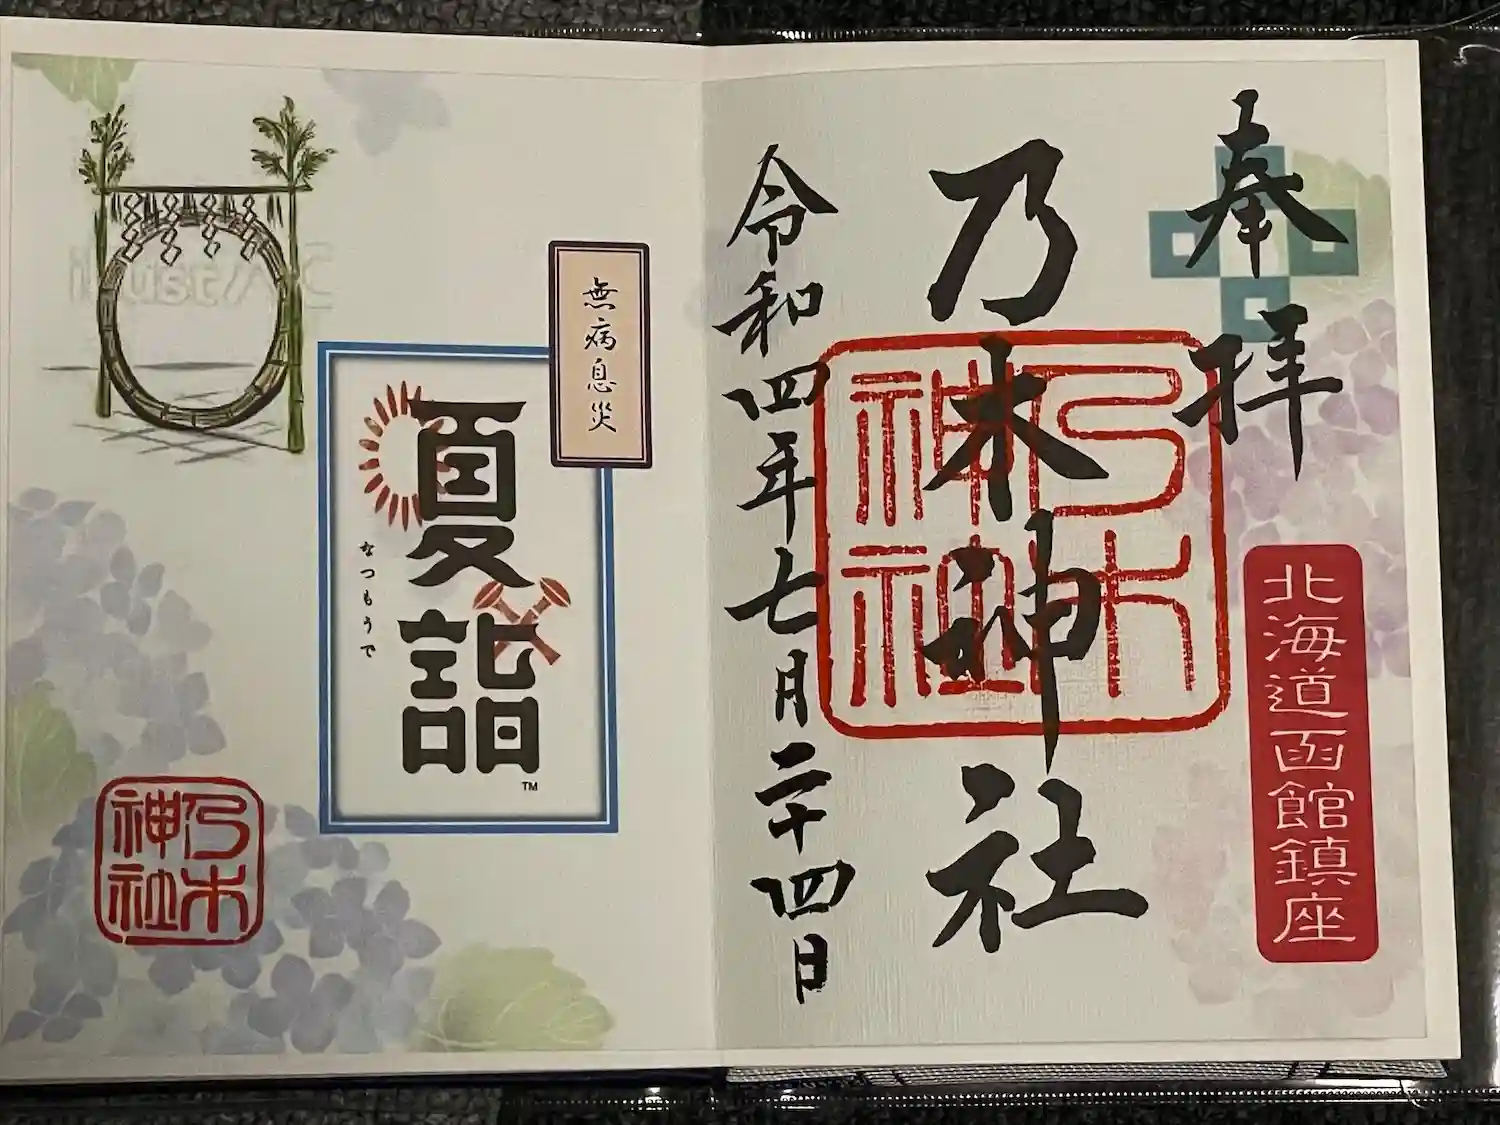 奉拝
北海道函館鎮座
乃木神社
乃木神社
令和四年七月二十四日
無病息災
夏詣
TM
なつもうで
乃木神社